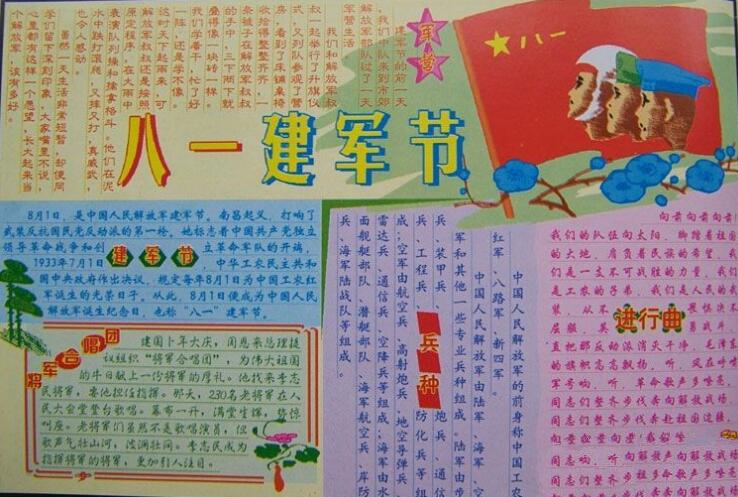 军营
建军节的前一天
我们中队到市郊
解放军部队过了一天
军营生活
我们和解放军叔
叔一起举行了升旗仪
式,又列队参观了营
房,看到了床铺桌椅
收拾得整整齐齐,一
条被子在解放军叔叔
的手中,三下两下就
叠得像一块砖一样。
我们学着干,忙了好
一阵,还是学不像。
这时天下起雨来,可
解放军叔叔还是按照
原定程序,在大雨中
表演队列操和擒拿格斗。他们在泥
水中跌打滚爬,又摔又打,真威武,
也令人感动。
虽然一天生活非常短暂,却使同
学们留下深刻印象,大家嘴里不说,
心里都有这样一个愿望,长大起来当
个解放军,该有多好。
八一
八一建军节
8月1日,是中国人民解放军建军节。南昌起义,打响了
武装反抗国民党反动派的第一枪。她标志着中国共产党独立
领导革命战争和创立革命军队的开端,
建军节
1933年7月1日,中华工农民主共和
国中央政府作出决议,规定每年8月1为中国工农红
军诞生的光荣日子。从此,8月1日便成为中国人民
解放军诞生纪念日,也称“八一”建军节。
将军合唱团
建国十年大庆,周恩来总理提
议组织“将军合唱团”,为伟大祖国
的生日献上一份将军的厚礼。他找来李志
民将军,要他担任指挥。那天,230名老将军在人
民大会堂登台歌唱。幕布一开,满堂生辉,惊
叫座。老将军们虽然不是歌唱演员,但
歌声气壮山河,波澜壮阔。李志民成为
指挥将军的将军,更加引人注目。
兵种
中国人民解放军的前身称中国工农
红军、八路军、新四军。
中国人民解放军由陆军、海军、空
军和其他一些专业兵种组成。陆军由步
兵、装甲兵、炮兵、通信
兵、工程兵、防化兵等组
成;空军由航空兵、高射炮兵、地空导弹兵
雷达兵、通信兵、空降兵等组成;海军由水
面舰艇部队、潜艇部队、海军航空兵、岸防
兵、海军陆战队等组成。
进行曲
向前向前向前!
我们的队伍向太阳,脚踏着祖国
的大地,肩负着民族的希望,我
们是一支不可战胜的力量,我们
是工农的子弟,我们是人民的武
装,从不畏惧决不
屈服,英勇战斗,
直把那反动派消灭干净,毛泽东
的旗帜高高飘扬,听,风在呼啸
军号响,听,革命歌声多嘹亮,
同志们整齐步伐奔向解放的战场
同志们整齐步伐奔赴祖国边疆,
同志响,听向解放声向战
同志们整齐步